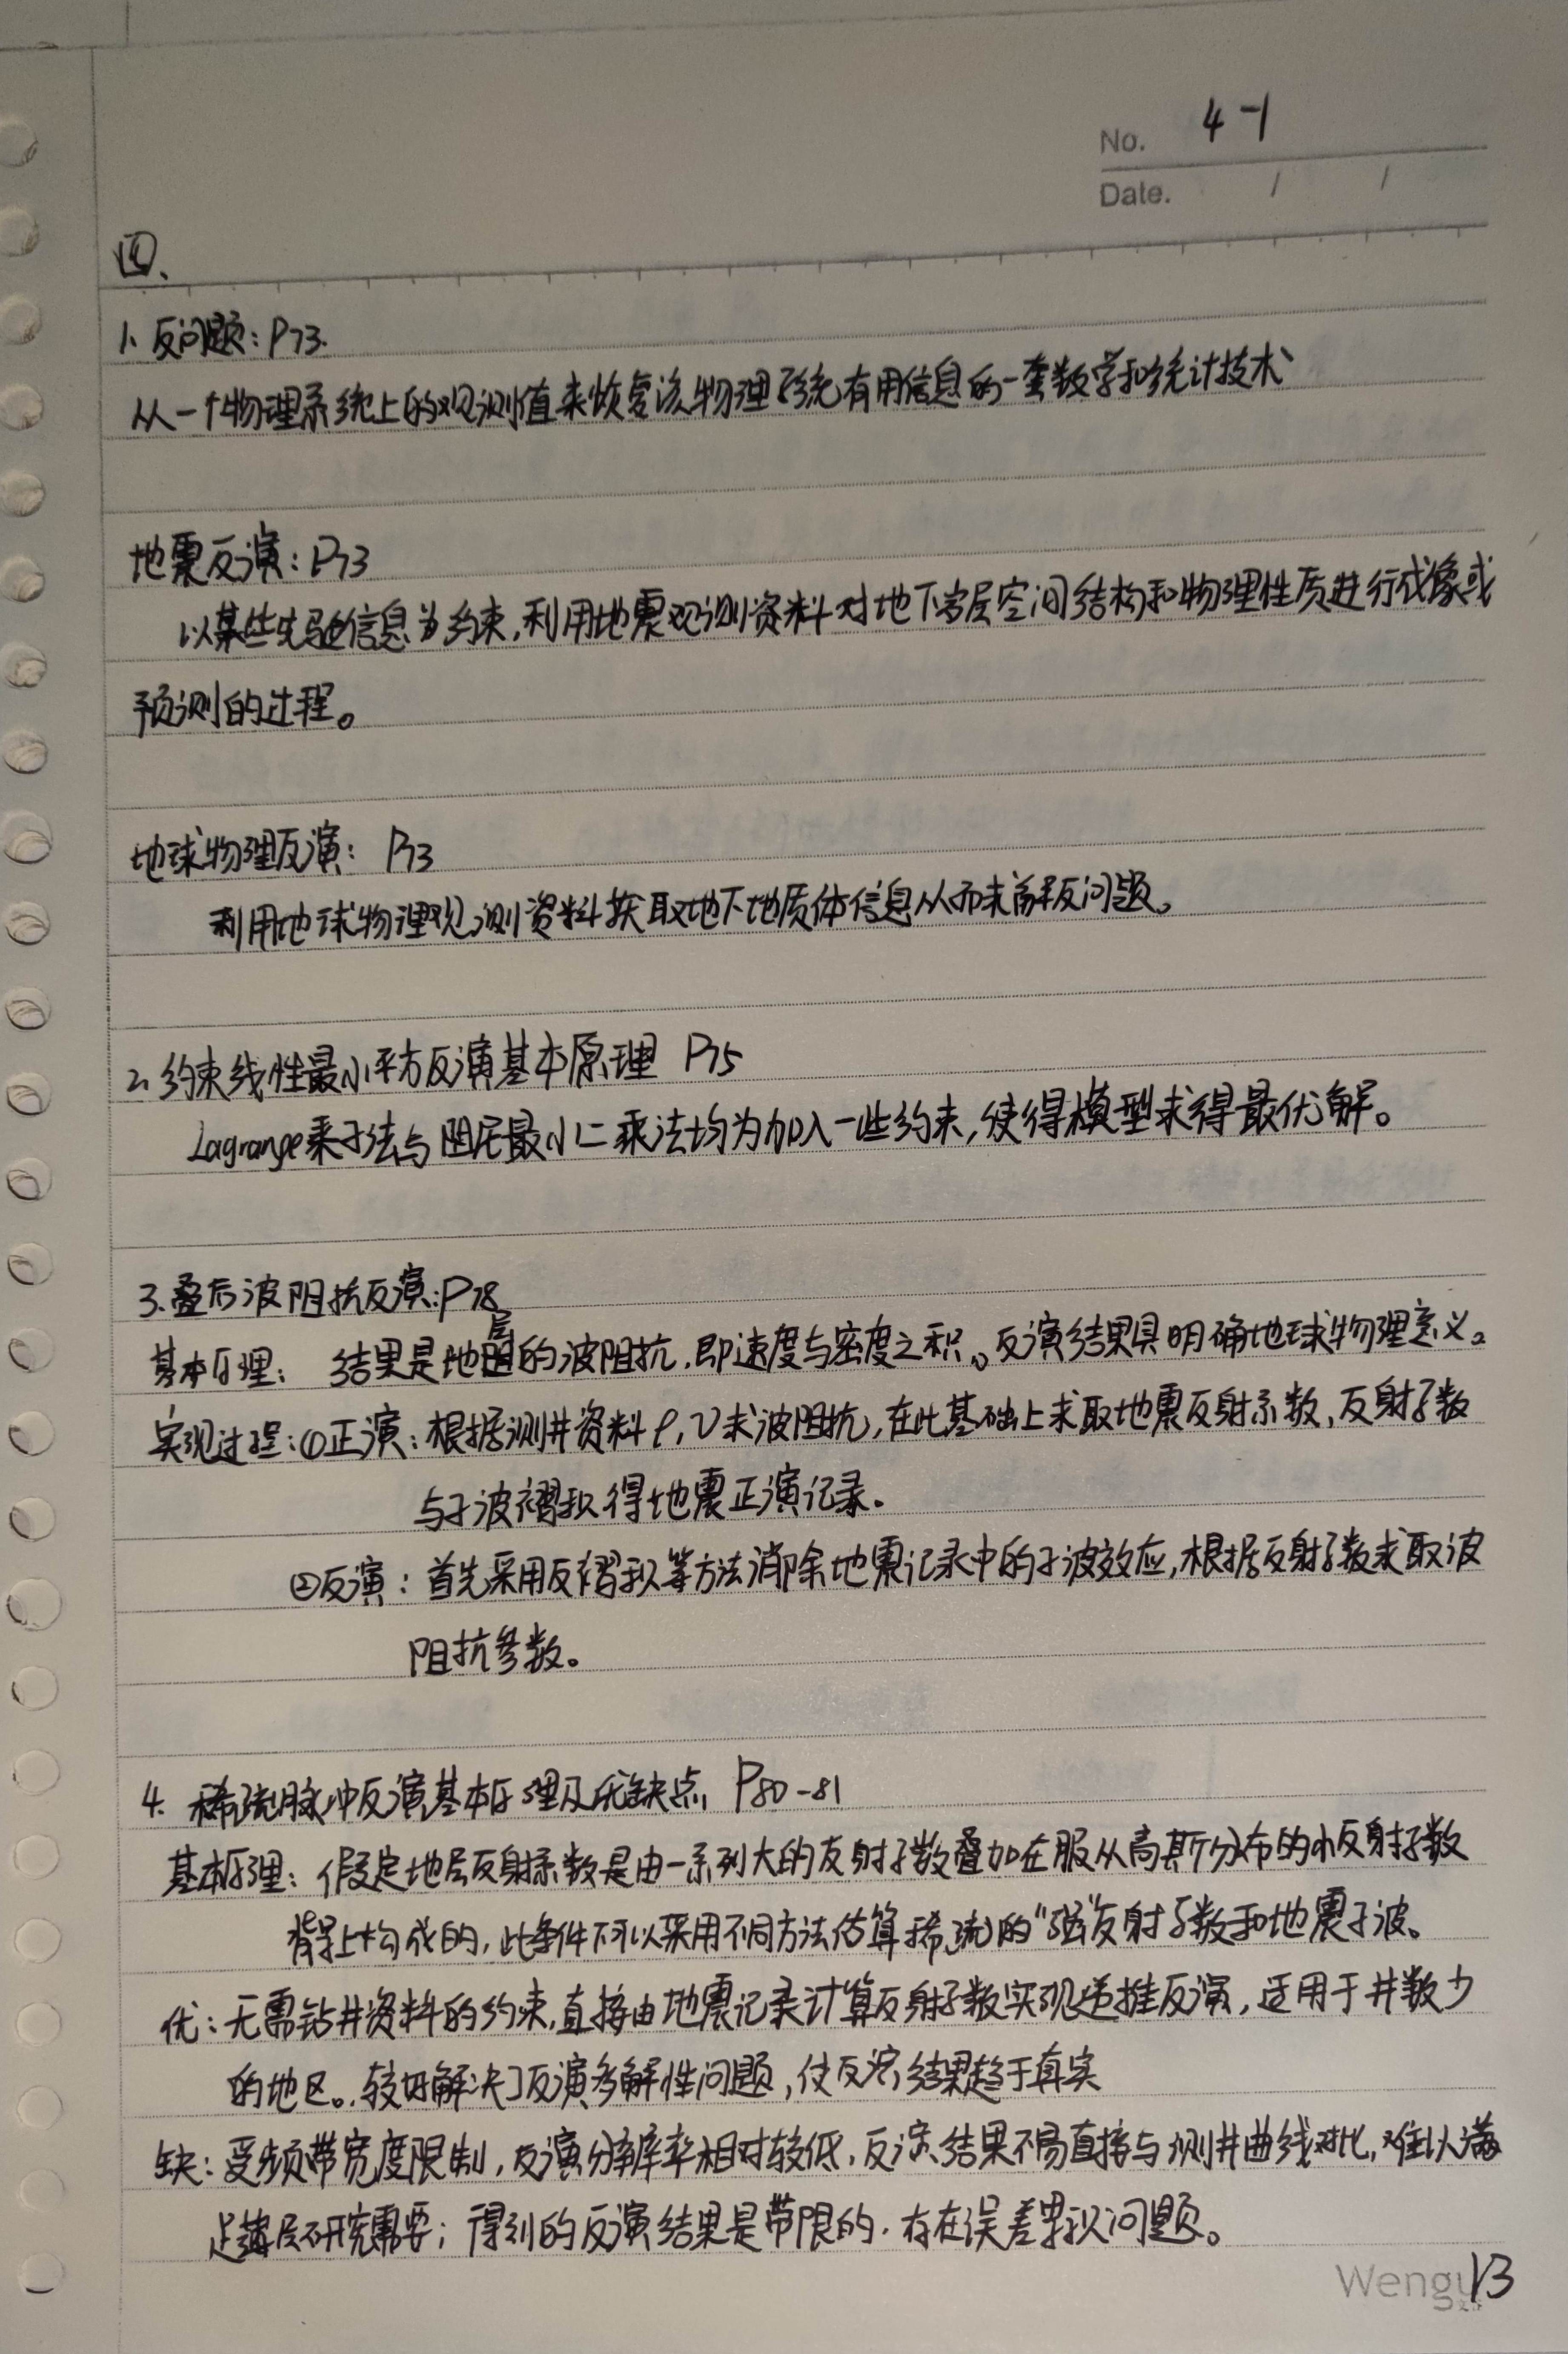 No. 4-1
Date. / /
四、
1、反问题：P73.
从一个物理系统上的观测值来恢复该物理系统有用信息的一套数学和统计技术
地震反演：P73
以某些先验信息为约束，利用地震观测资料对地下岩层空间结构和物理性质进行成像或
预测的过程。
地球物理反演： P73
利用地球物理观测资料获取地下地质体信息从而求解反问题。
2、约束线性最小平方反演基本原理 P75
Lagrange乘子法与阻尼最小二乘法均为加入一些约束，使得模型求得最优解。
3.叠后波阻抗反演：P78
基本原理： 结果是地层的波阻抗，即速度与密度之积。反演结果具明确地球物理意义。
实现过程：①正演：根据测井资料ρ，V求波阻抗，在此基础上求取地震反射系数，反射系数
与子波褶积得地震正演记录。
②反演：首先采用反褶积等方法消除地震记录中的子波效应，根据反射系数求取波
阻抗参数。
4. 稀疏脉冲反演基本原理及优缺点 P80-81
基本原理：假定地层反射系数是由一系列大的反射系数叠加在服从高斯分布的小反射系数
背景上构成的，此条件下可以采用不同方法估算稀疏的“强”反射系数和地震子波。
优：无需钻井资料的约束，直接由地震记录计算反射系数实现递推反演，适用于井数少
的地区。较好解决了反演多解性问题，使反演结果趋于真实
缺：受频带宽度限制，反演分辨率相对较低，反演结果不易直接与测井曲线对比，难以满
足薄层研究需要；得到的反演结果是带限的，存在误差累积问题。
Wengu 13